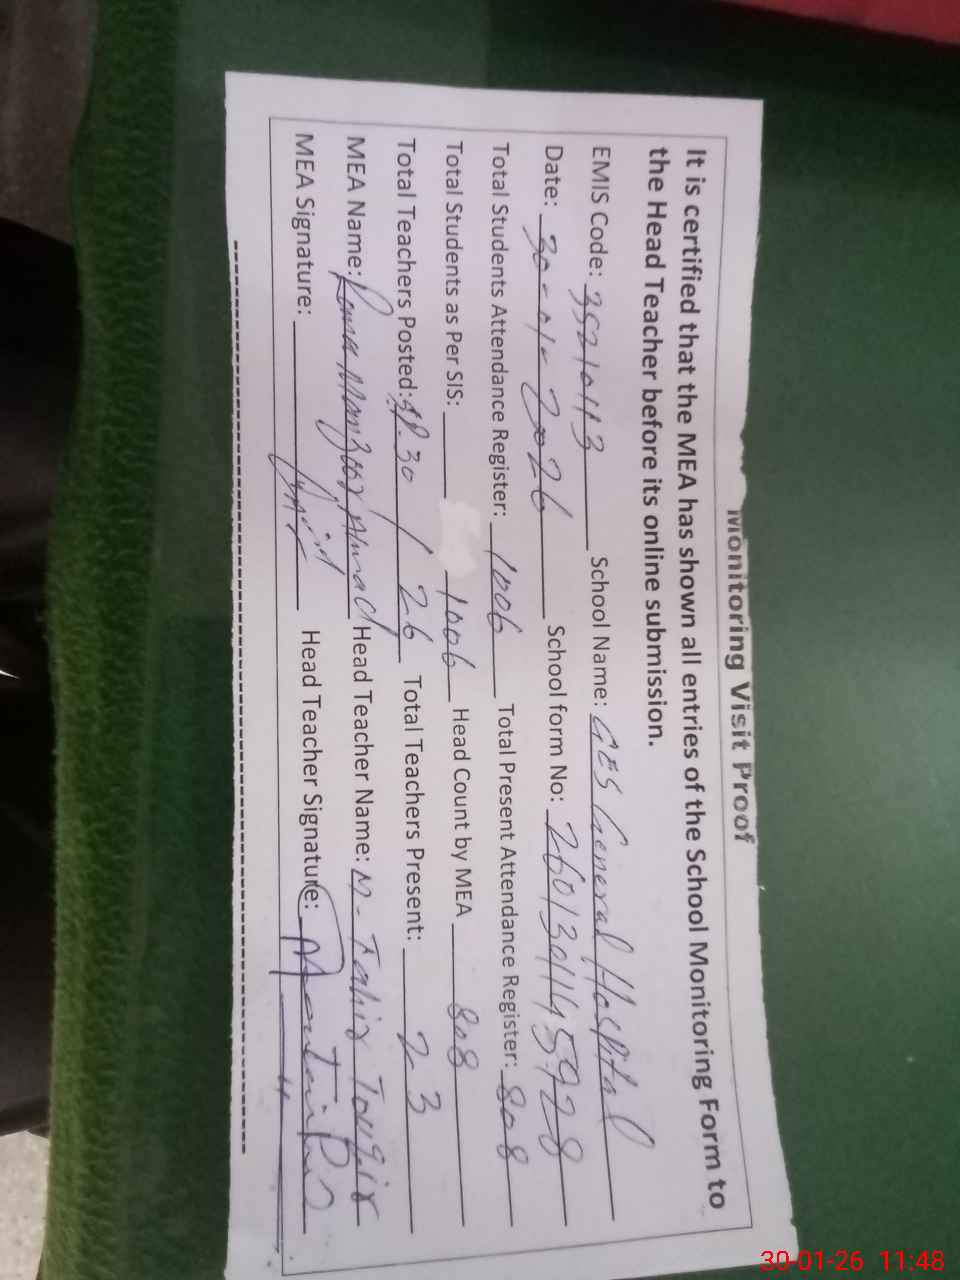 Monitoring Visit Proof
It is certified that the MEA has shown all entries of the School Monitoring Form to
the Head Teacher before its online submission.
EMIS Code: 35210113 School Name: GES General Hospital
Date: 30-01-2026 School form No: 2601301145928
Total Students Attendance Register: 1006 Total Present Attendance Register: 808
Total Students as Per SIS: 1006 Head Count by MEA 808
Total Teachers Posted: 30 / 26 Total Teachers Present: 23
MEA Name: Rana Manzoor Ahmad Head Teacher Name: M. Tahir Touqir
MEA Signature: Head Teacher Signature:
30-01-26 11:48